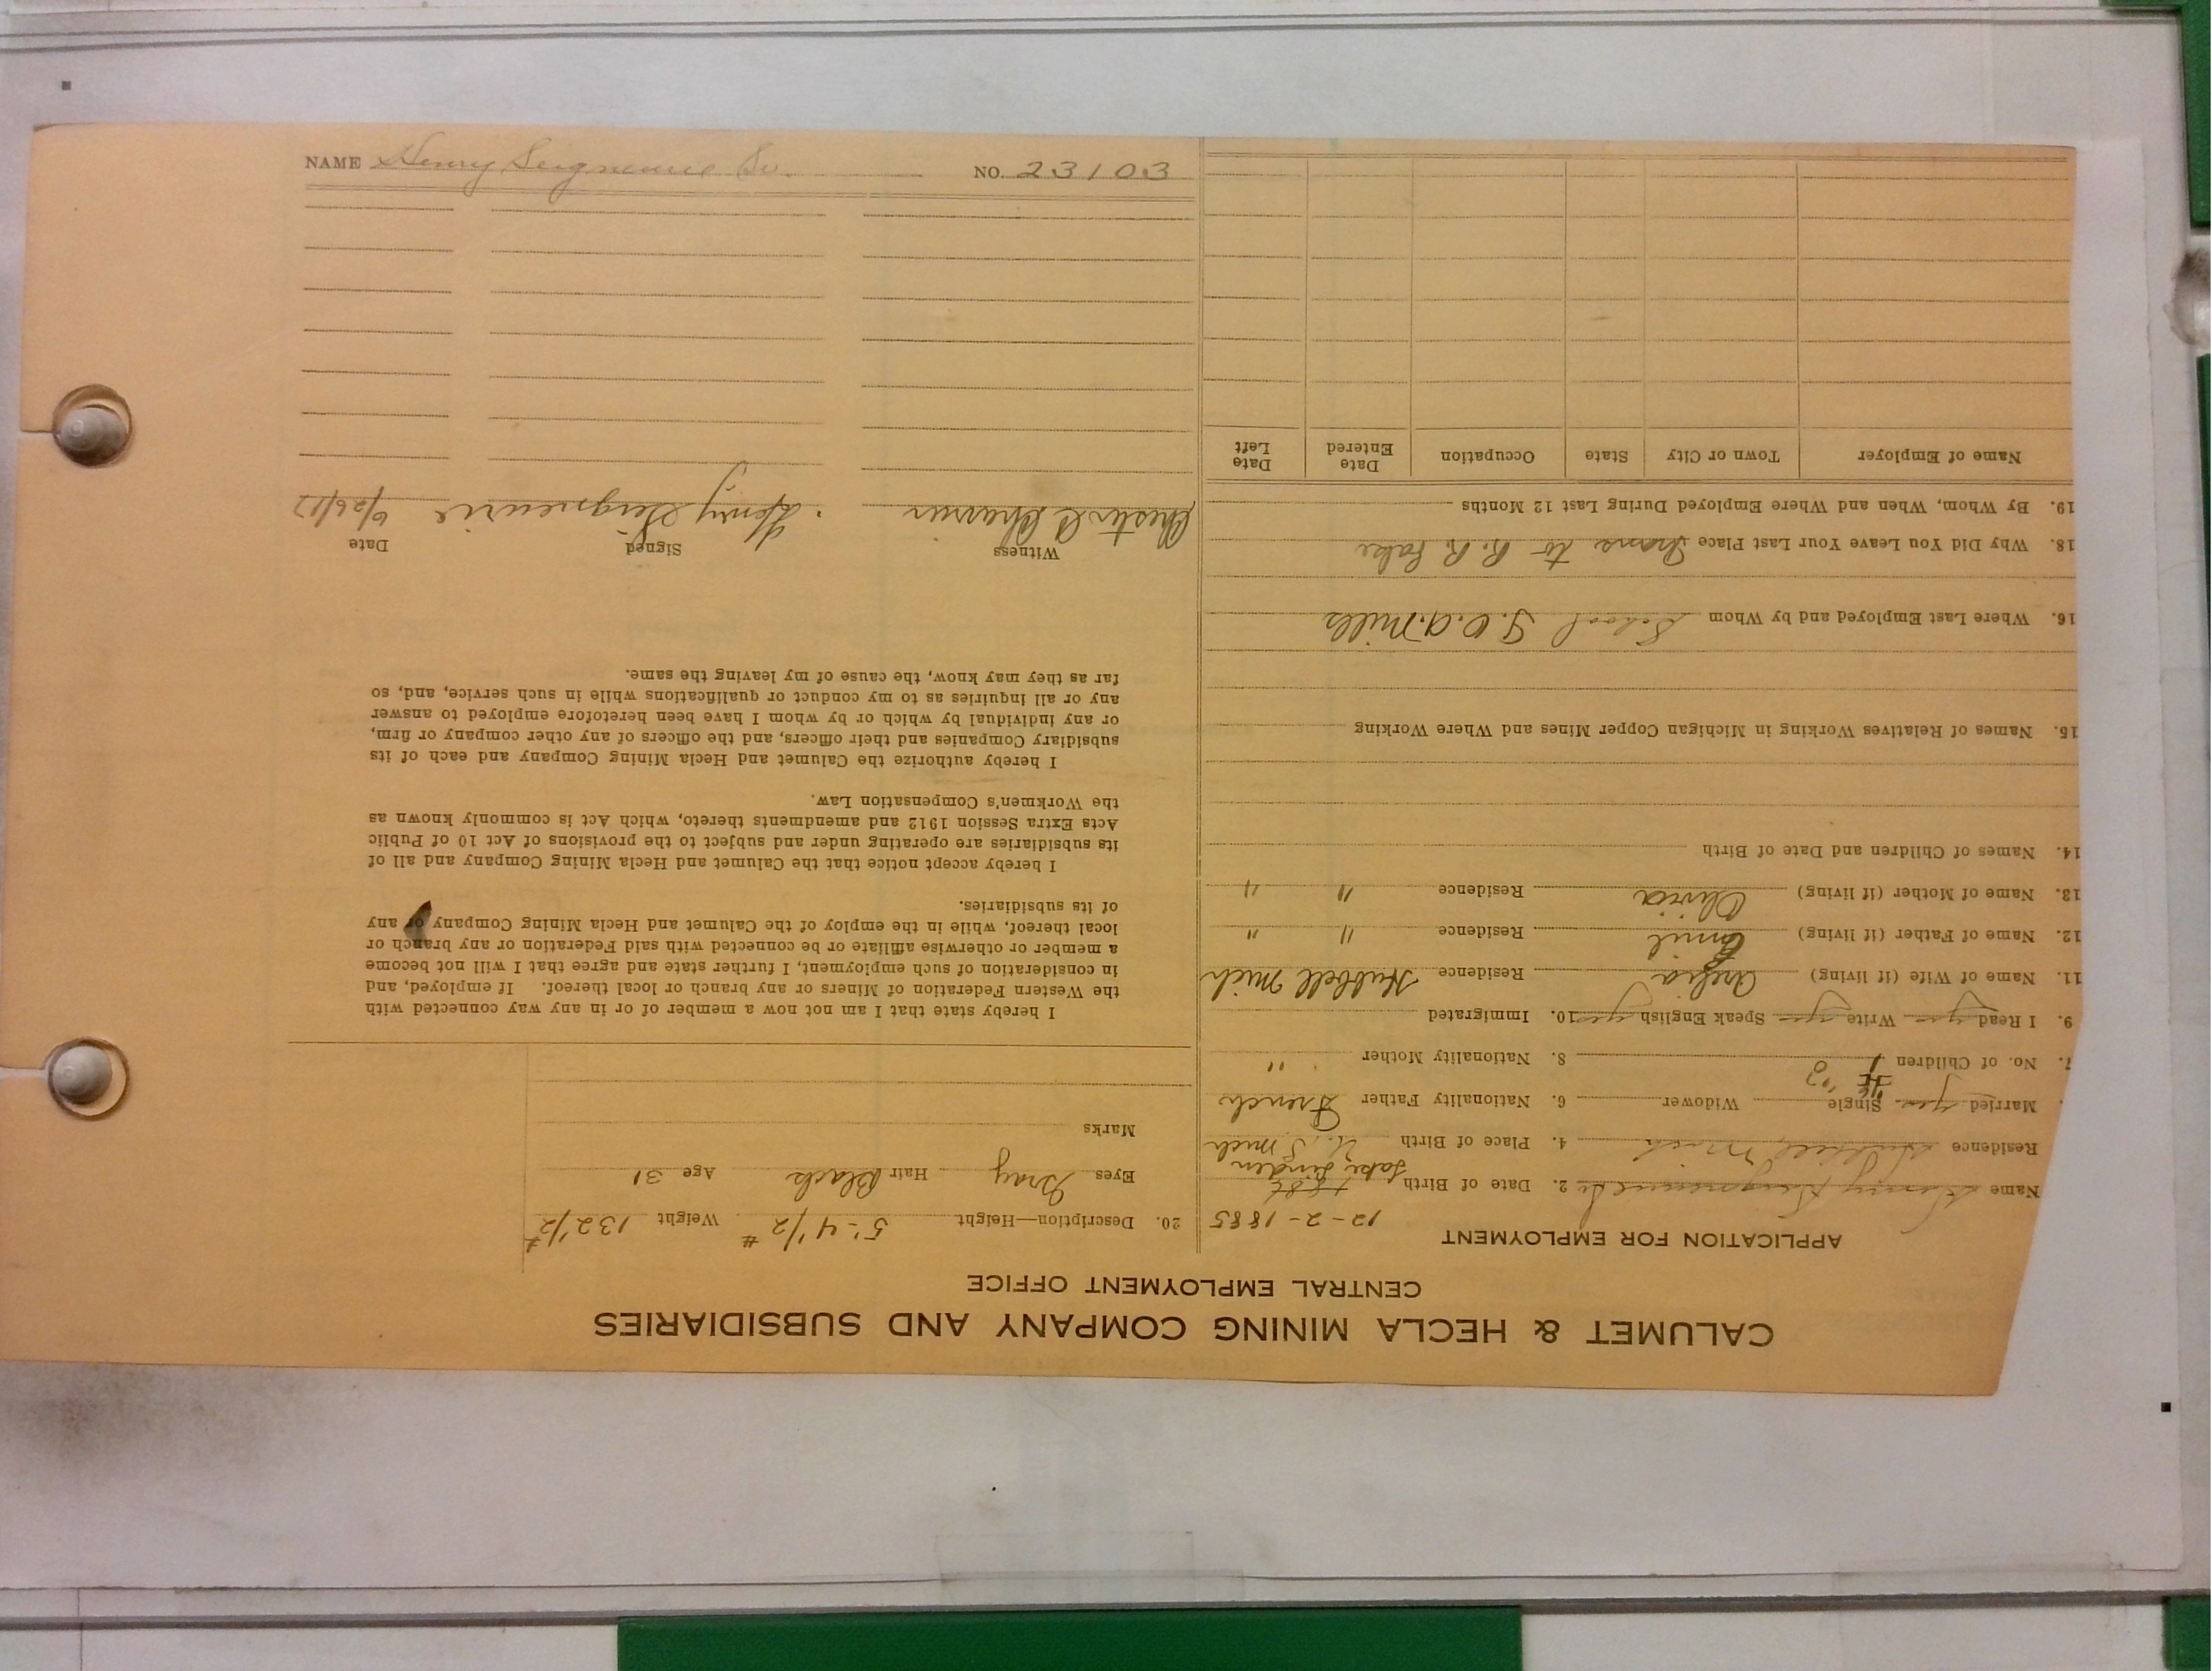 CALUMET & HECLA MINING COMPANY AND SUBSIDIARIES
CENTRAL EMPLOYMENT OFFICE
APPLICATION FOR EMPLOYMENT
Name Henry 2. Date of Birth 12-2-1885
Residence Hubbell Mich 4. Place of Birth Lake Linden Mich
Married yes Single Widower 6. Nationality Father French
7. No. of Children 8. Nationality Mother "
9. I Read yes Write yes Speak English yes 10. Immigrated
11. Name of Wife (if living) Residence Hubbell Mich
12. Name of Father (if living) Residence " "
13. Name of Mother (if living) Olivia Residence " "
14. Names of Children and Date of Birth
15. Names of Relatives Working in Michigan Copper Mines and Where Working
16. Where Last Employed and by Whom Mills
18. Why Did You Leave Your Last Place Trans to R. R. Lake
19. By Whom, When and Where Employed During Last 12 Months
Name of Employer Town or City State Occupation Date Entered Date Left
20. Description—Height 5'-4 1/2 " Weight 132 1/2 #
Eyes Gray Hair Black Age 31
Marks
I hereby state that I am not now a member of or in any way connected with
the Western Federation of Miners or any branch or local thereof. If employed, and
in consideration of such employment, I further state and agree that I will not become
a member or otherwise affiliate or be connected with said Federation or any branch or
local thereof, while in the employ of the Calumet and Hecla Mining Company or any
of its subsidiaries.
I hereby accept notice that the Calumet and Hecla Mining Company and all of
its subsidiaries are operating under and subject to the provisions of Act 10 of Public
Acts Extra Session 1912 and amendments thereto, which Act is commonly known as
the Workmen's Compensation Law.
I hereby authorize the Calumet and Hecla Mining Company and each of its
subsidiary Companies and their officers, and the officers of any other company or firm,
or any individual by which or by whom I have been heretofore employed to answer
any or all inquiries as to my conduct or qualifications while in such service, and, so
far as they may know, the cause of my leaving the same.
Witness Signed Date
Henry Seigneurie 6/26/17
NAME Henry NO. 23103